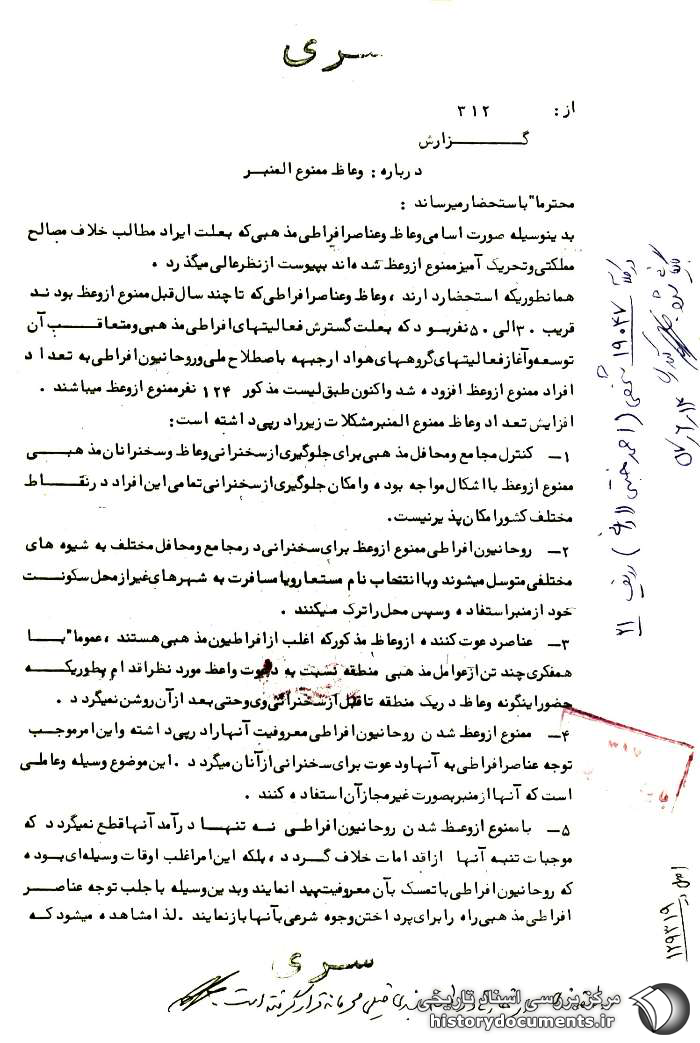 سری
از: ۳۱۲
گزارش
درباره: وعاظ ممنوع المنبر
محترما" باستحضار میرساند:
بدینوسیله صورت اسامی وعاظ و عناصر افراطی مذهبی که بعلت ایراد مطالب خلاف مصالح
مملکتی و تحریک آمیز ممنوع از وعظ شده اند بپیوست از نظر عالی میگذرد.
همانطوریکه استحضار دارند، وعاظ و عناصر افراطی که تا چند سال قبل ممنوع از وعظ بودند
قریب ۳۰ الی ۵۰ نفر بود که بعلت گسترش فعالیتهای افراطی مذهبی و متعاقب آن
توسعه و آغاز فعالیتهای گروههای هوادار جبهه باصطلاح ملی و روحانیون افراطی به تعداد
افراد ممنوع از وعظ افزوده شد و اکنون طبق لیست مذکور ۱۲۴ نفر ممنوع از وعظ میباشند.
افزایش تعداد وعاظ ممنوع المنبر مشکلات زیر را در پی داشته است:
۱- کنترل مجامع و محافل مذهبی برای جلوگیری از سخنرانی وعاظ و سخنرانان مذهبی
ممنوع از وعظ با اشکال مواجه بوده و امکان جلوگیری از سخنرانی تمامی این افراد در نقاط
مختلف کشور امکان پذیر نیست.
۲- روحانیون افراطی ممنوع از وعظ برای سخنرانی در مجامع و محافل مختلف به شیوه های
مختلفی متوسل میشوند و با انتخاب نام مستعار و یا مسافرت به شهرهای غیر از محل سکونت
خود از منبر استفاده و سپس محل را ترک میکنند.
۳- عناصر دعوت کننده از وعاظ مذکور که اغلب از افراطیون مذهبی هستند، عموما" با
همفکری چند تن از عوامل مذهبی منطقه نسبت به دعوت واعظ مورد نظر اقدام بطوریکه
حضور اینگونه وعاظ در یک منطقه تا قبل از سخنرانی وی و حتی بعد از آن روشن نمیگردد.
۴- ممنوع از وعظ شدن روحانیون افراطی معروفیت آنها را در پی داشته و این امر موجب
توجه عناصر افراطی به آنها و دعوت برای سخنرانی از آنان میگردد. این موضوع وسیله و عاملی
است که آنها از منبر بصورت غیر مجاز آن استفاده کنند.
۵- با ممنوع از وعظ شدن روحانیون افراطی نه تنها درآمد آنها قطع نمیگردد که
موجبات تنبه آنها از اقدامات خلاف گردد، بلکه این امر اغلب اوقات وسیله ای بوده
که روحانیون افراطی با تمسک بآن معروفیت پیدا نمایند و بدین وسیله با جلب توجه عناصر
افراطی مذهبی راه را برای پرداختن وجوه شرعی بآنها باز نمایند. لذا مشاهده میشود که
سری
خیلی محرمانه قرار گرفته است.
۱۹۰۴۷
ردیف ۲۱
۵۷/۶/۱۴
۳۱۷
اصل در ۱۲۹۳۱۹
مرکز بررسی اسناد تاریخی
historydocuments.ir